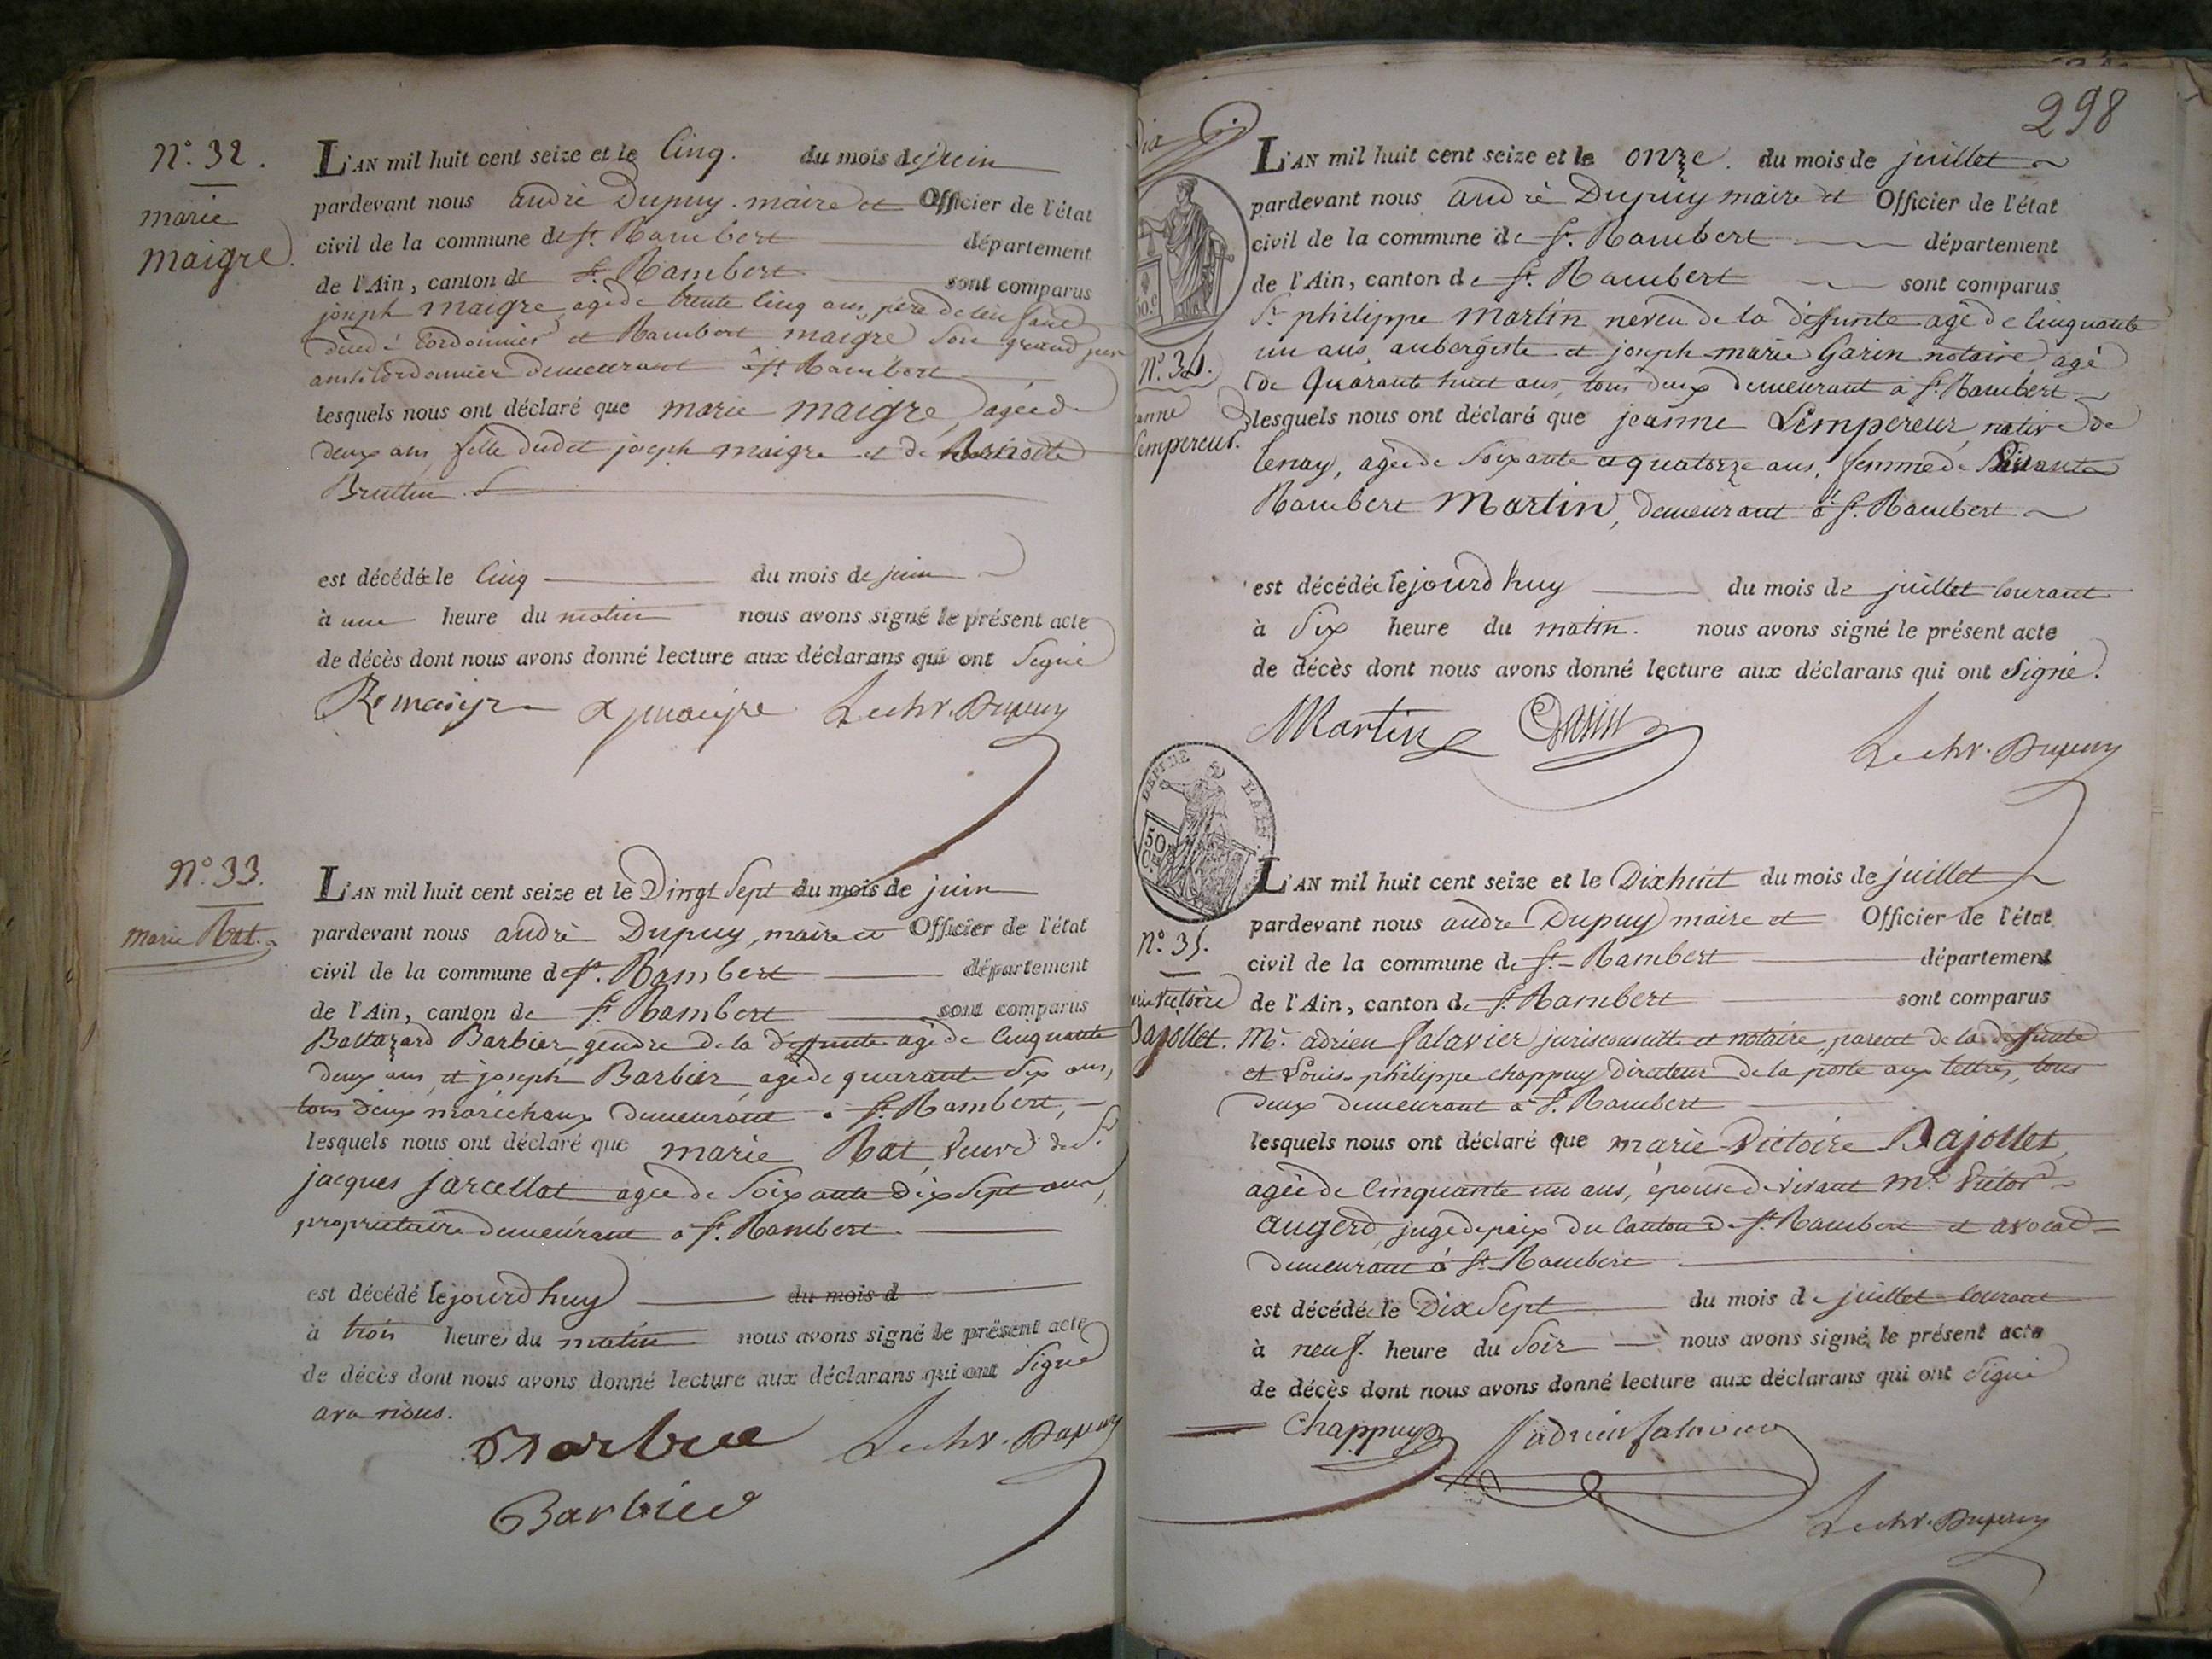 N.° 32.
marie
maigre.
L'AN mil huit cent seize et le Cinq. du mois de juin
pardevant nous andré Dupuy. maire et Officier de l'état
civil de la commune de St. Rambert département
de l'Ain, canton de St. Rambert sont comparus
joseph maigre agé de trente Cinq ans, père de
Cordonnier et Rambert maigre Son grand per
aussi Cordonnier demeurant à St. Rambert
lesquels nous ont déclaré que marie maigre, agée de
deux ans, fille dudit joseph maigre et de
est décédée le Cinq du mois de juin
à une heure du matin nous avons signé le présent acte
de décès dont nous avons donné lecture aux déclarans qui ont Signé
Le chr. Dupuy
N.° 33.
marie Rat.
L'AN mil huit cent seize et le Vingt Sept du mois de juin
pardevant nous andré Dupuy, maire et Officier de l'état
civil de la commune de St. Rambert département
de l'Ain, canton de St. Rambert sont comparus
Baltazard Barbier, gendre de la deffunte agé de Cinquante
deux ans, et joseph Barbier, agé de quarante Six ans,
tous deux maréchaux demeurant à St. Rambert,
lesquels nous ont déclaré que marie Rat, Veuve de S.r
jacques jarcellat agée de Soixante Dix Sept ans,
propriétaire demeurant à St. Rambert.
est décédé lejourd huy du mois d
à trois heures du matin nous avons signé le présent acte
de décès dont nous avons donné lecture aux déclarans qui ont Signé
avec nous.
Barbier
Le chr. Dupuy
Barbier
298
50.c
N.° 34.
Lempereur.
L'AN mil huit cent seize et le onze. du mois de juillet
pardevant nous andré Dupuy maire et Officier de l'état
civil de la commune de St. Rambert département
de l'Ain, canton de St. Rambert sont comparus
S.r philippe martin neveu de la deffunte agé de Cinquante
un ans, aubergiste et joseph-marie Garin notaire, agé
de quarante huit ans, tous deux demeurant à St. Rambert
lesquels nous ont déclaré que jeanne Lempereur, native de
tenay, agée de Soixante et quatorze ans, femme de
Rambert Martin, demeurant à St. Rambert
est décédée lejourd huy du mois de juillet Courant
à Six heure du matin. nous avons signé le présent acte
de décès dont nous avons donné lecture aux déclarans qui ont Signé.
Martin Garin
Le chr. Dupuy
DEPT. DE
50
Ces
N.° 35.
Victoire
Bajollet.
L'AN mil huit cent seize et le Dix huit du mois de juillet
pardevant nous andré Dupuy maire et Officier de l'état
civil de la commune de St. Rambert département
de l'Ain, canton de St. Rambert sont comparus
M.r adrien Salavier jurisconsulte et notaire, parent de la deffunte
et Louis-philippe chappuy Directeur de la poste aux lettres, tous
deux demeurant à St. Rambert
lesquels nous ont déclaré que marie-Victoire Bajollet,
agée de Cinquante un ans, épouse de vivant M.r Victor
augerd, juge de paix du Canton de St. Rambert et avocat
demeurant à St. Rambert
est décédée le Dix Sept du mois de juillet Courant
à neuf. heure du Soir nous avons signé le présent acte
de décès dont nous avons donné lecture aux déclarans qui ont Signé
Chappuy adrien Salavier
Le chr. Dupuy